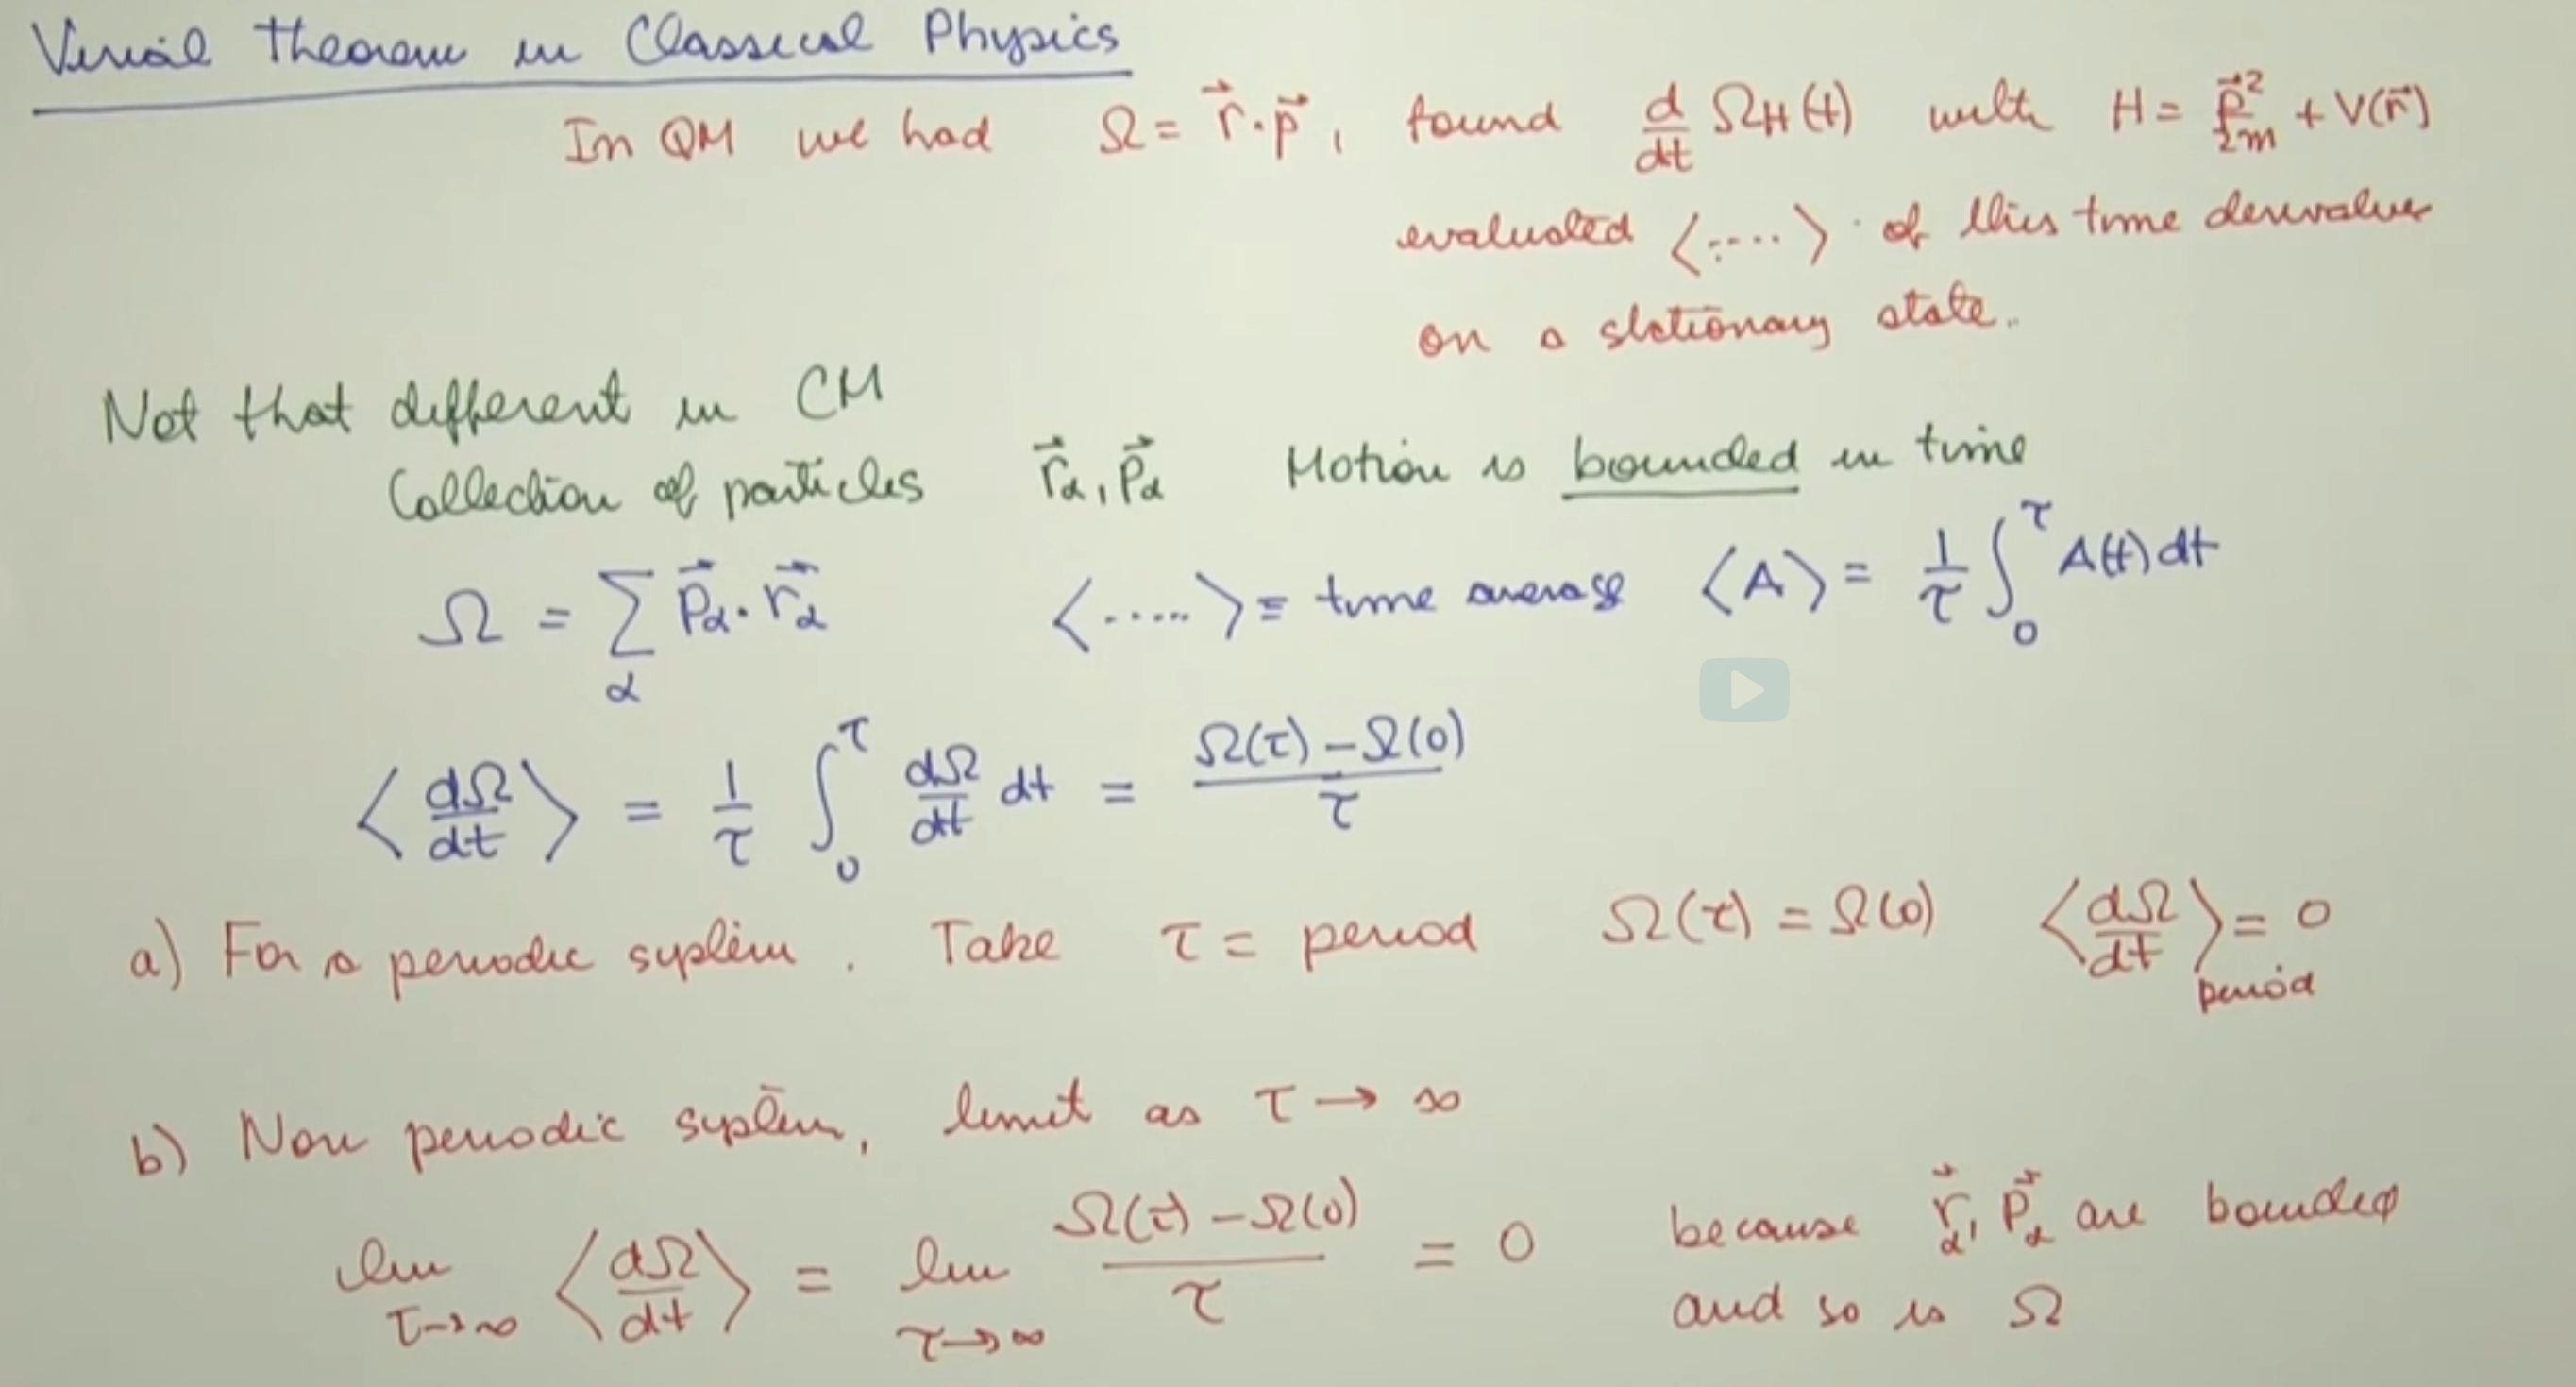 Virial Theorem in Classical Physics
In QM we had Ω = r⃗·p⃗, found d/dt Ω_H(t) with H = p⃗²/2m + V(r⃗)
evaluated ⟨.....⟩ of this time derivative
on a stationary state.
Not that different in CM
Collection of particles r⃗_α, p⃗_α Motion is bounded in time
Ω = Σ_α p⃗_α · r⃗_α ⟨.....⟩ ≡ time average ⟨A⟩ = 1/τ ∫_0^τ A(t) dt
⟨dΩ/dt⟩ = 1/τ ∫_0^τ dΩ/dt dt = (Ω(τ) − Ω(0))/τ
a) For a periodic system. Take τ = period Ω(τ) = Ω(0) ⟨dΩ/dt⟩_period = 0
b) Non periodic system, limit as τ → ∞
lim_{τ→∞} ⟨dΩ/dt⟩ = lim_{τ→∞} (Ω(τ) − Ω(0))/τ = 0 because r⃗_α, p⃗_α are bounded
and so is Ω